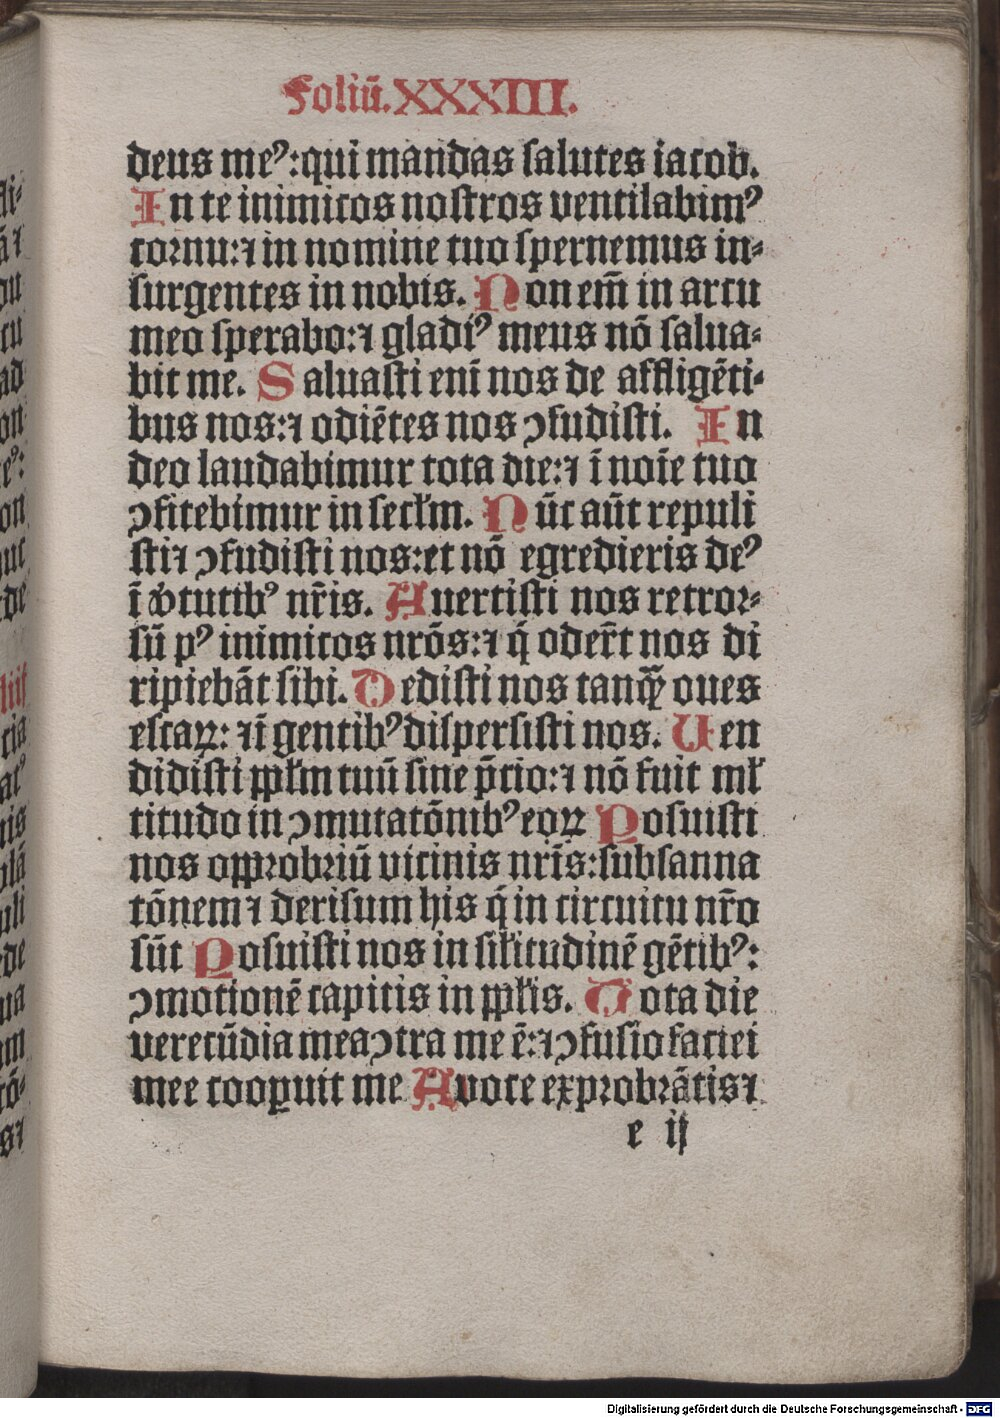 Foliū.XXXIII.
deus meꝰ:qui mandas ſalutes iacob.
In te inimicos noſtros ventilabimꝰ
cornu:⁊ in nomine tuo ſpernemus in⸗
ſurgentes in nobis. Non em̄ in arcu
meo ſperabo:⁊ gladiꝰ meus nō ſalua⸗
bit me. Saluaſti eni̅ nos de affligēti⸗
bus nos:⁊ odiētes nos ꝯfudiſti. In
deo laudabimur tota die:⁊ ī noīe tuo
ꝯfitebimur in ſecłm. Nūc aūt repuli
ſti⁊ ꝯfudiſti nos:et nō egredieris deꝰ
ī v̓tutibꝰ nr̄is. Auertiſti nos retror⸗
ſū pꝰ inimicos nrōs:⁊ q̄ oder̄t nos di
ripiebāt ſibi. Dediſti nos tanqꝫ oues
eſcaꝝ: ⁊ī gentibꝰ diſperſiſti nos. Uen
didiſti ppłm tuū ſine p̄cio:⁊ nō fuit mł
titudo in ꝯmutatōnibꝰ eoꝝ Poſuiſti
nos opprobriū vicinis nrīs:ſubſanna
tōnem⁊ deriſum his q̄ in circuitu nr̄o
ſūt Poſuiſti nos in ſiłitudinē gētibꝰ:
ꝯmotionē capitis in ppłis. Tota die
verecūdia mea ꝯtra me ē:⁊ ꝯfuſio faciei
mee cooꝑuit me A voce exprobrātis⁊
e ij
Digitalisierung gefördert durch die Deutsche Forschungsgemeinschaft - DFG